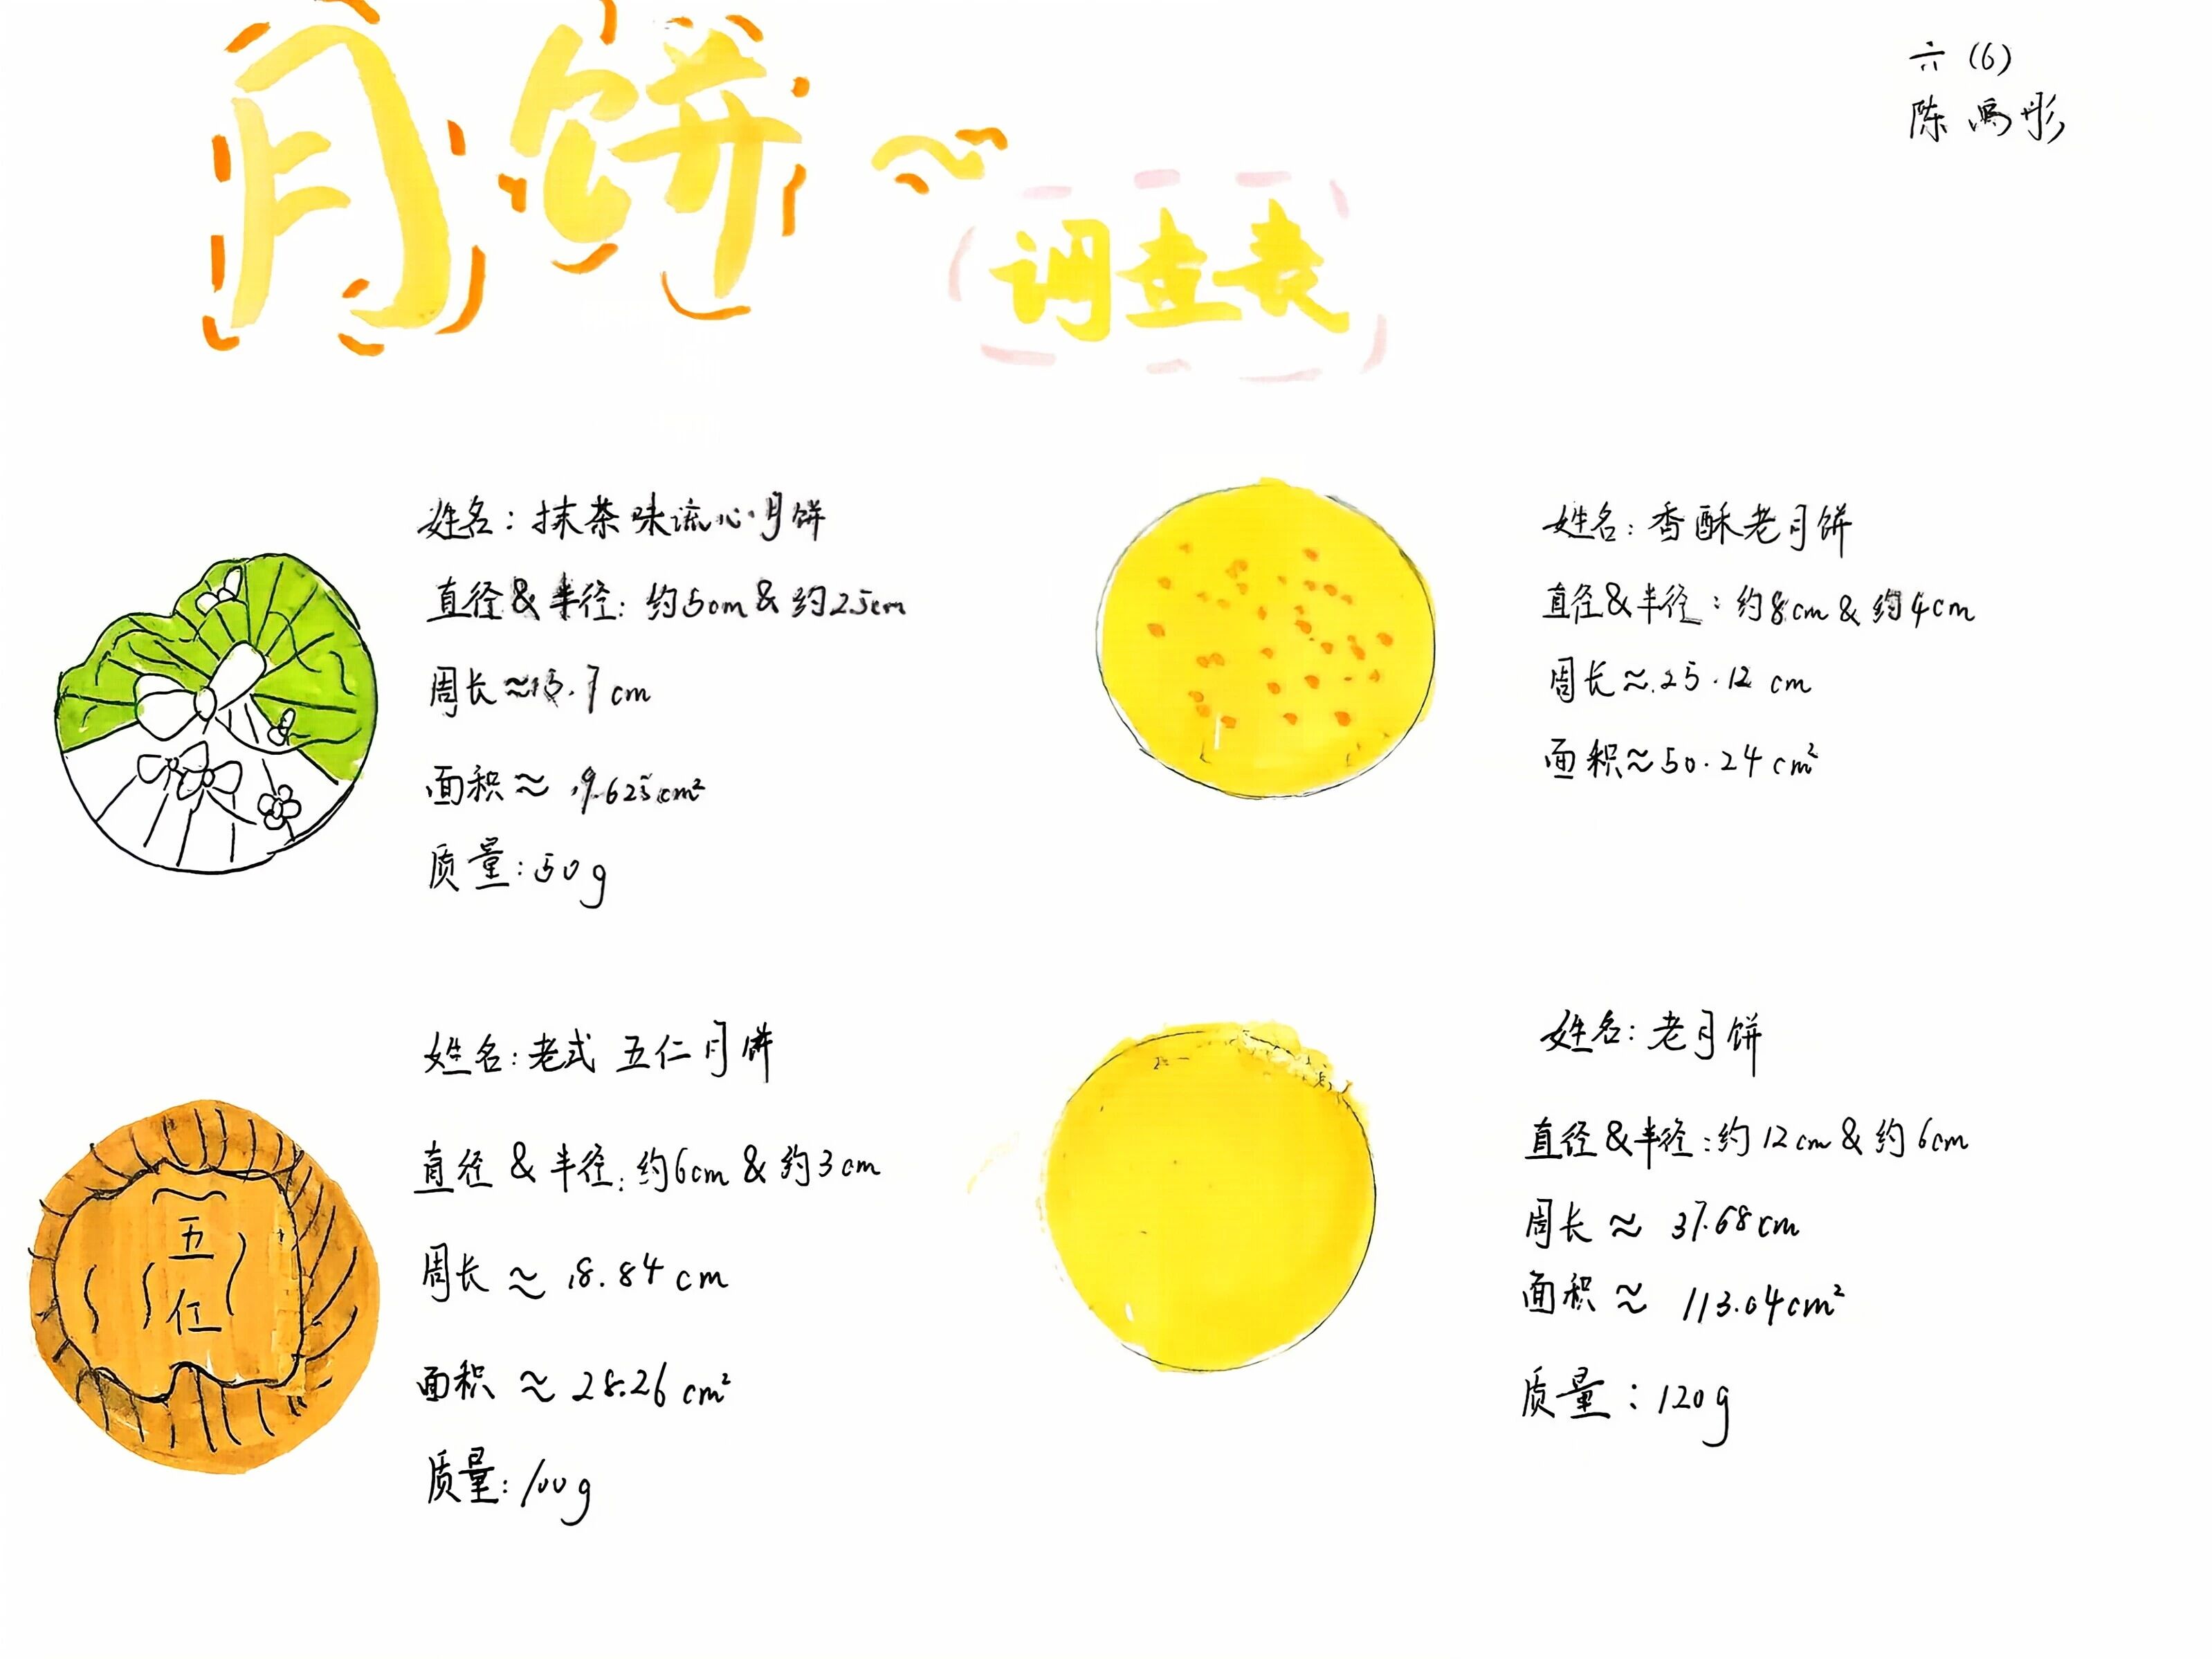 月饼
调查表
六(6)
陈禹彤
姓名：抹茶味流心月饼
直径&半径：约5cm & 约2.5cm
周长≈15.7cm
面积≈19.625cm²
质量：50g
姓名：香酥老月饼
直径&半径：约8cm & 约4cm
周长≈25.12cm
面积≈50.24cm²
姓名：老式五仁月饼
直径&半径：约6cm & 约3cm
周长≈18.84cm
面积≈28.26cm²
质量：100g
五
仁
姓名：老月饼
直径&半径：约12cm & 约6cm
周长≈37.68cm
面积≈113.04cm²
质量：120g